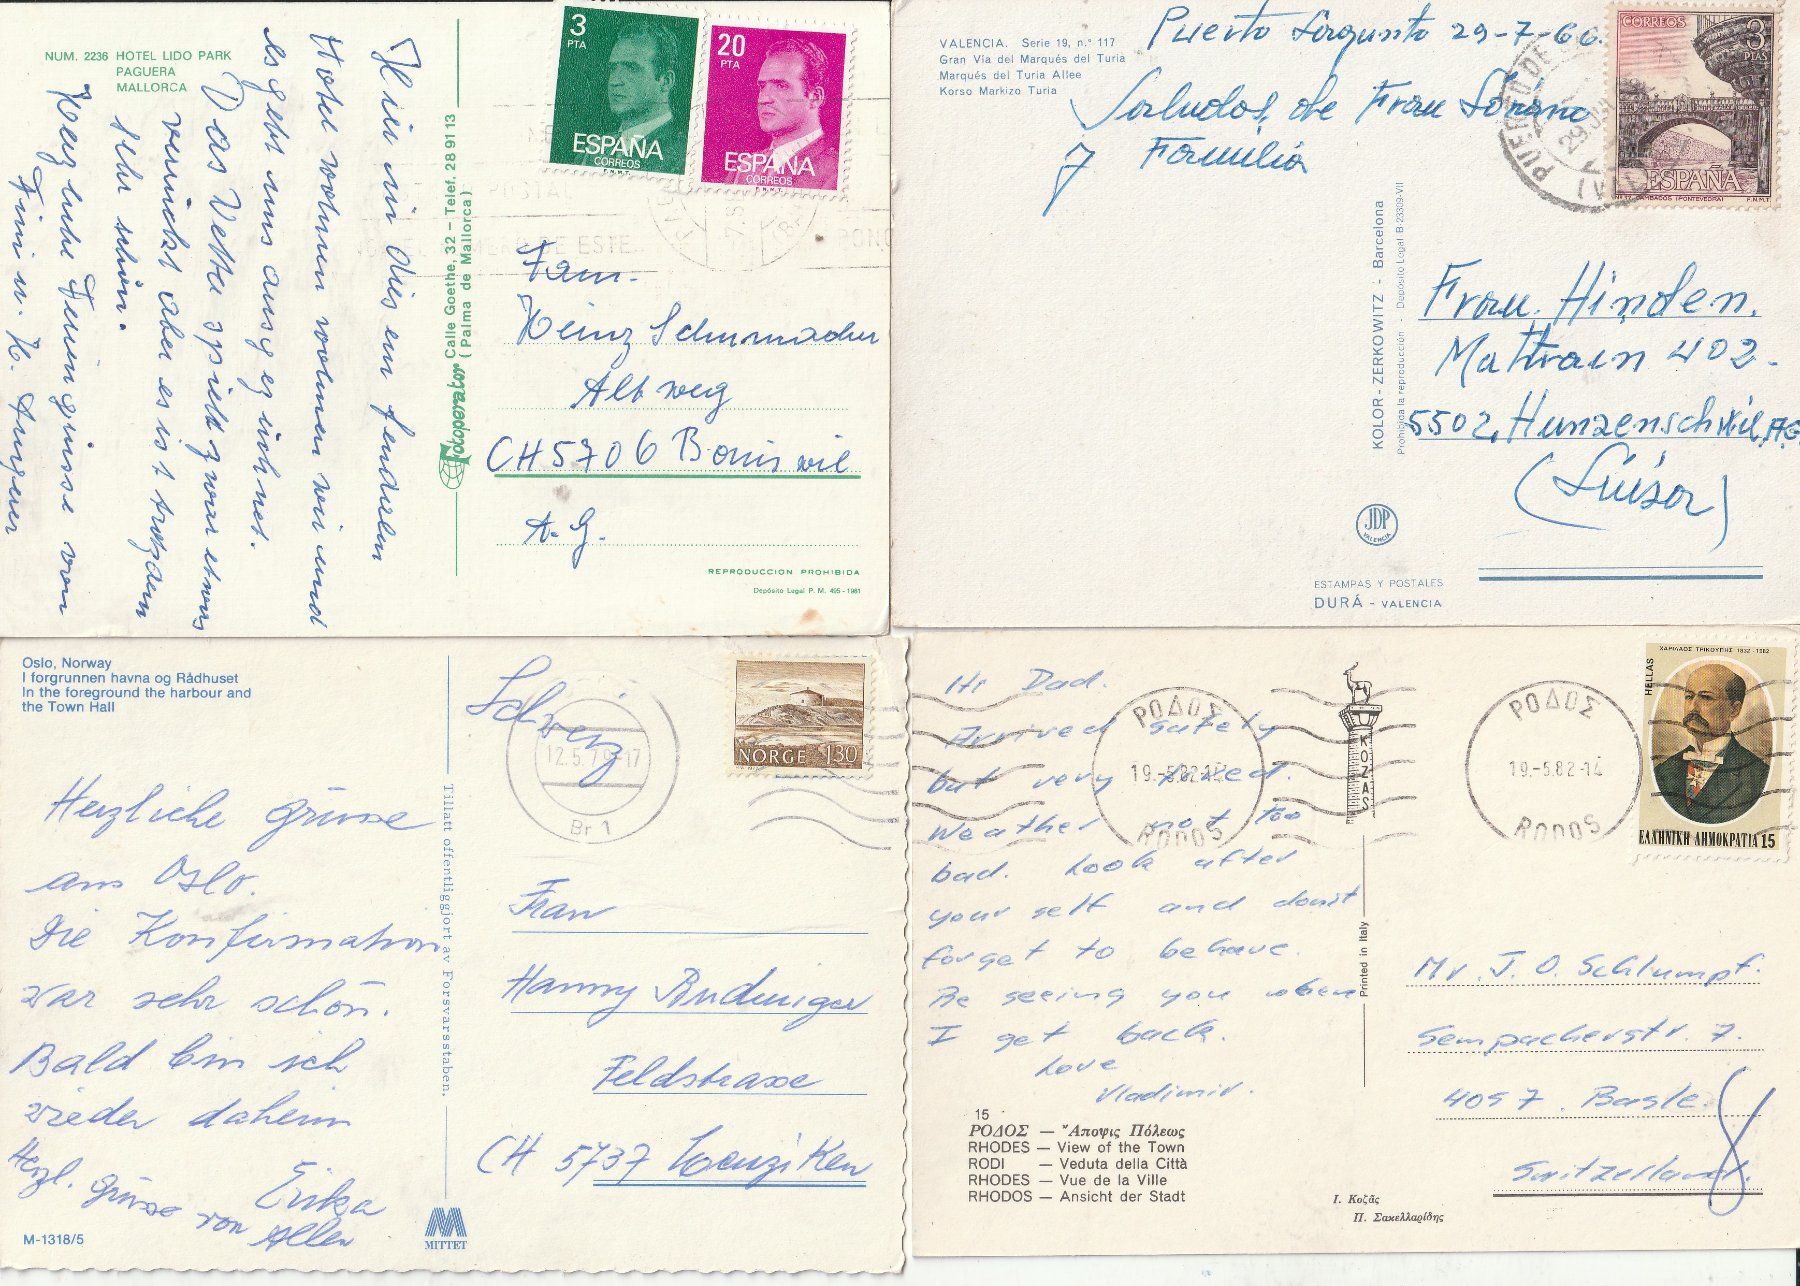 NUM. 2236 HOTEL LIDO PARK
PAGUERA
MALLORCA
Hier in diesem feudalen
Hotel wohnen wir und
es geht uns ausgezeichnet.
Das Wetter spielt zwar etwas
verrückt aber es ist trotzdem
sehr schön.
Herzliche Feriengrüsse von
Fini u. H.
Fotoperator Calle Goethe, 32 - Telef. 28 91 13
(Palma de Mallorca)
3
PTA
ESPAÑA
CORREOS
F.N.M.T.
20
PTA
ESPAÑA
CORREOS
F.N.M.T.
Fam.
Heinz Schumacher
Altweg
CH 5706 Boniswil
A.G.
REPRODUCCION PROHIBIDA
Depósito Legal P. M. 495 - 1981
VALENCIA. Serie 19, n.° 117
Gran Vía del Marqués del Turia
Marqués del Turia Allee
Korso Markizo Turia
Puerto Sagunto 29-7-66.
Saludos de Frau Sorano
y Familia
KOLOR - ZERKOWITZ - Barcelona
Prohibida la reproducción - Depósito Legal B-23309-VII
CORREOS
3
PTAS
ESPAÑA
CAMBADOS (PONTEVEDRA)
F.N.M.T
PUERTO DE
Frau. Hinden.
Mattrain 402-
5502, Hunzenschwil, AG
(Suiser)
JDP
VALENCIA
ESTAMPAS Y POSTALES
DURÁ - VALENCIA
Oslo, Norway
I forgrunnen havna og Rådhuset
In the foreground the harbour and
the Town Hall
Herzliche Grüsse
aus Oslo.
Die Konfirmation
war sehr schön.
Bald bin ich
wieder daheim
Herzl. Grüsse von
Erika
Allen
M-1318/5
Tillatt offentliggjort av Forsvarsstaben.
MITTET
Schweiz
12.5.79-17
Br 1
NORGE 130
Frau
Hanny
Feldstrasse
CH 5737 Menziken
Hi Dad.
Arrived safely
but very tired.
Weather not too
bad. Look after
your self and dont
forget to behave.
Be seeing you when
I get back.
Love
Vladimir.
15
ΡΟΔΟΣ — Ἄποψις Πόλεως
RHODES — View of the Town
RODI — Veduta della Città
RHODES — Vue de la Ville
RHODOS — Ansicht der Stadt
Printed in Italy
Ι. Κοζᾶς
Π. Σακελλαρίδης
ΡΟΔΟΣ
19.-5.82-14
RODOS
KOZAS
ΡΟΔΟΣ
19.-5.82-14
RODOS
ΧΑΡΙΛΑΟΣ ΤΡΙΚΟΥΠΗΣ 1832-1982
HELLAS
ΕΛΛΗΝΙΚΗ ΔΗΜΟΚΡΑΤΙΑ 15
Mr. J. O. Schlumpf.
Sempacherstr. 7.
4057. Basle.
Switzerland.